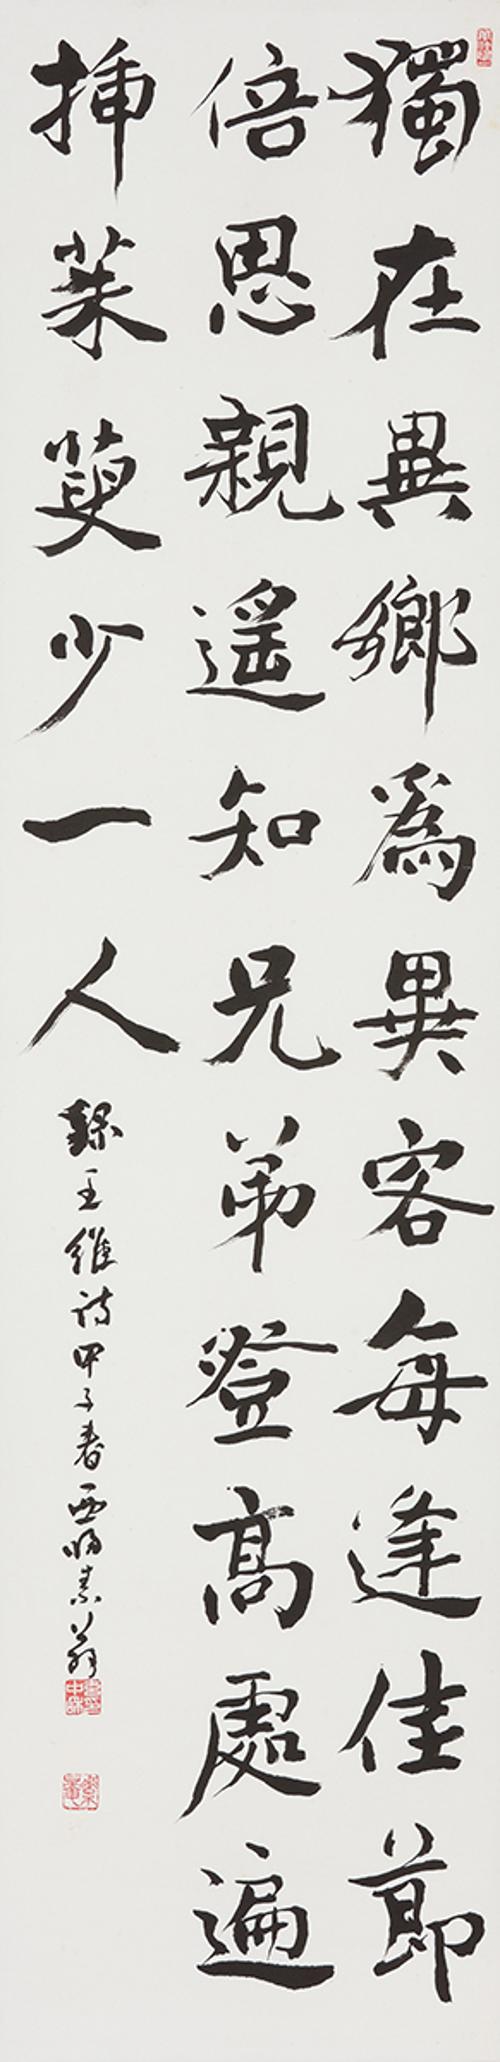 獨在異鄉爲異客每逢佳節
倍思親遙知兄弟登高處遍
插茱萸少一人
錄王維詩甲子春西素翁